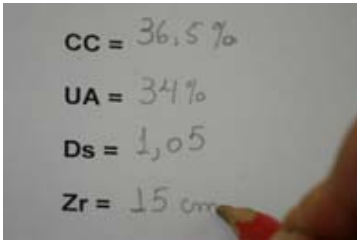 CC = 36,5%
UA = 34%
Ds = 1,05
Zr = 15 cm